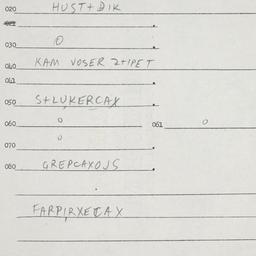 020 HUST+DIK
030 0
040 KAM VOSER 2+IPET
041
050 S+LUKERCAX
060 0 061 0
070 0
080 GREPCAXOJS
FARPIRXECAX